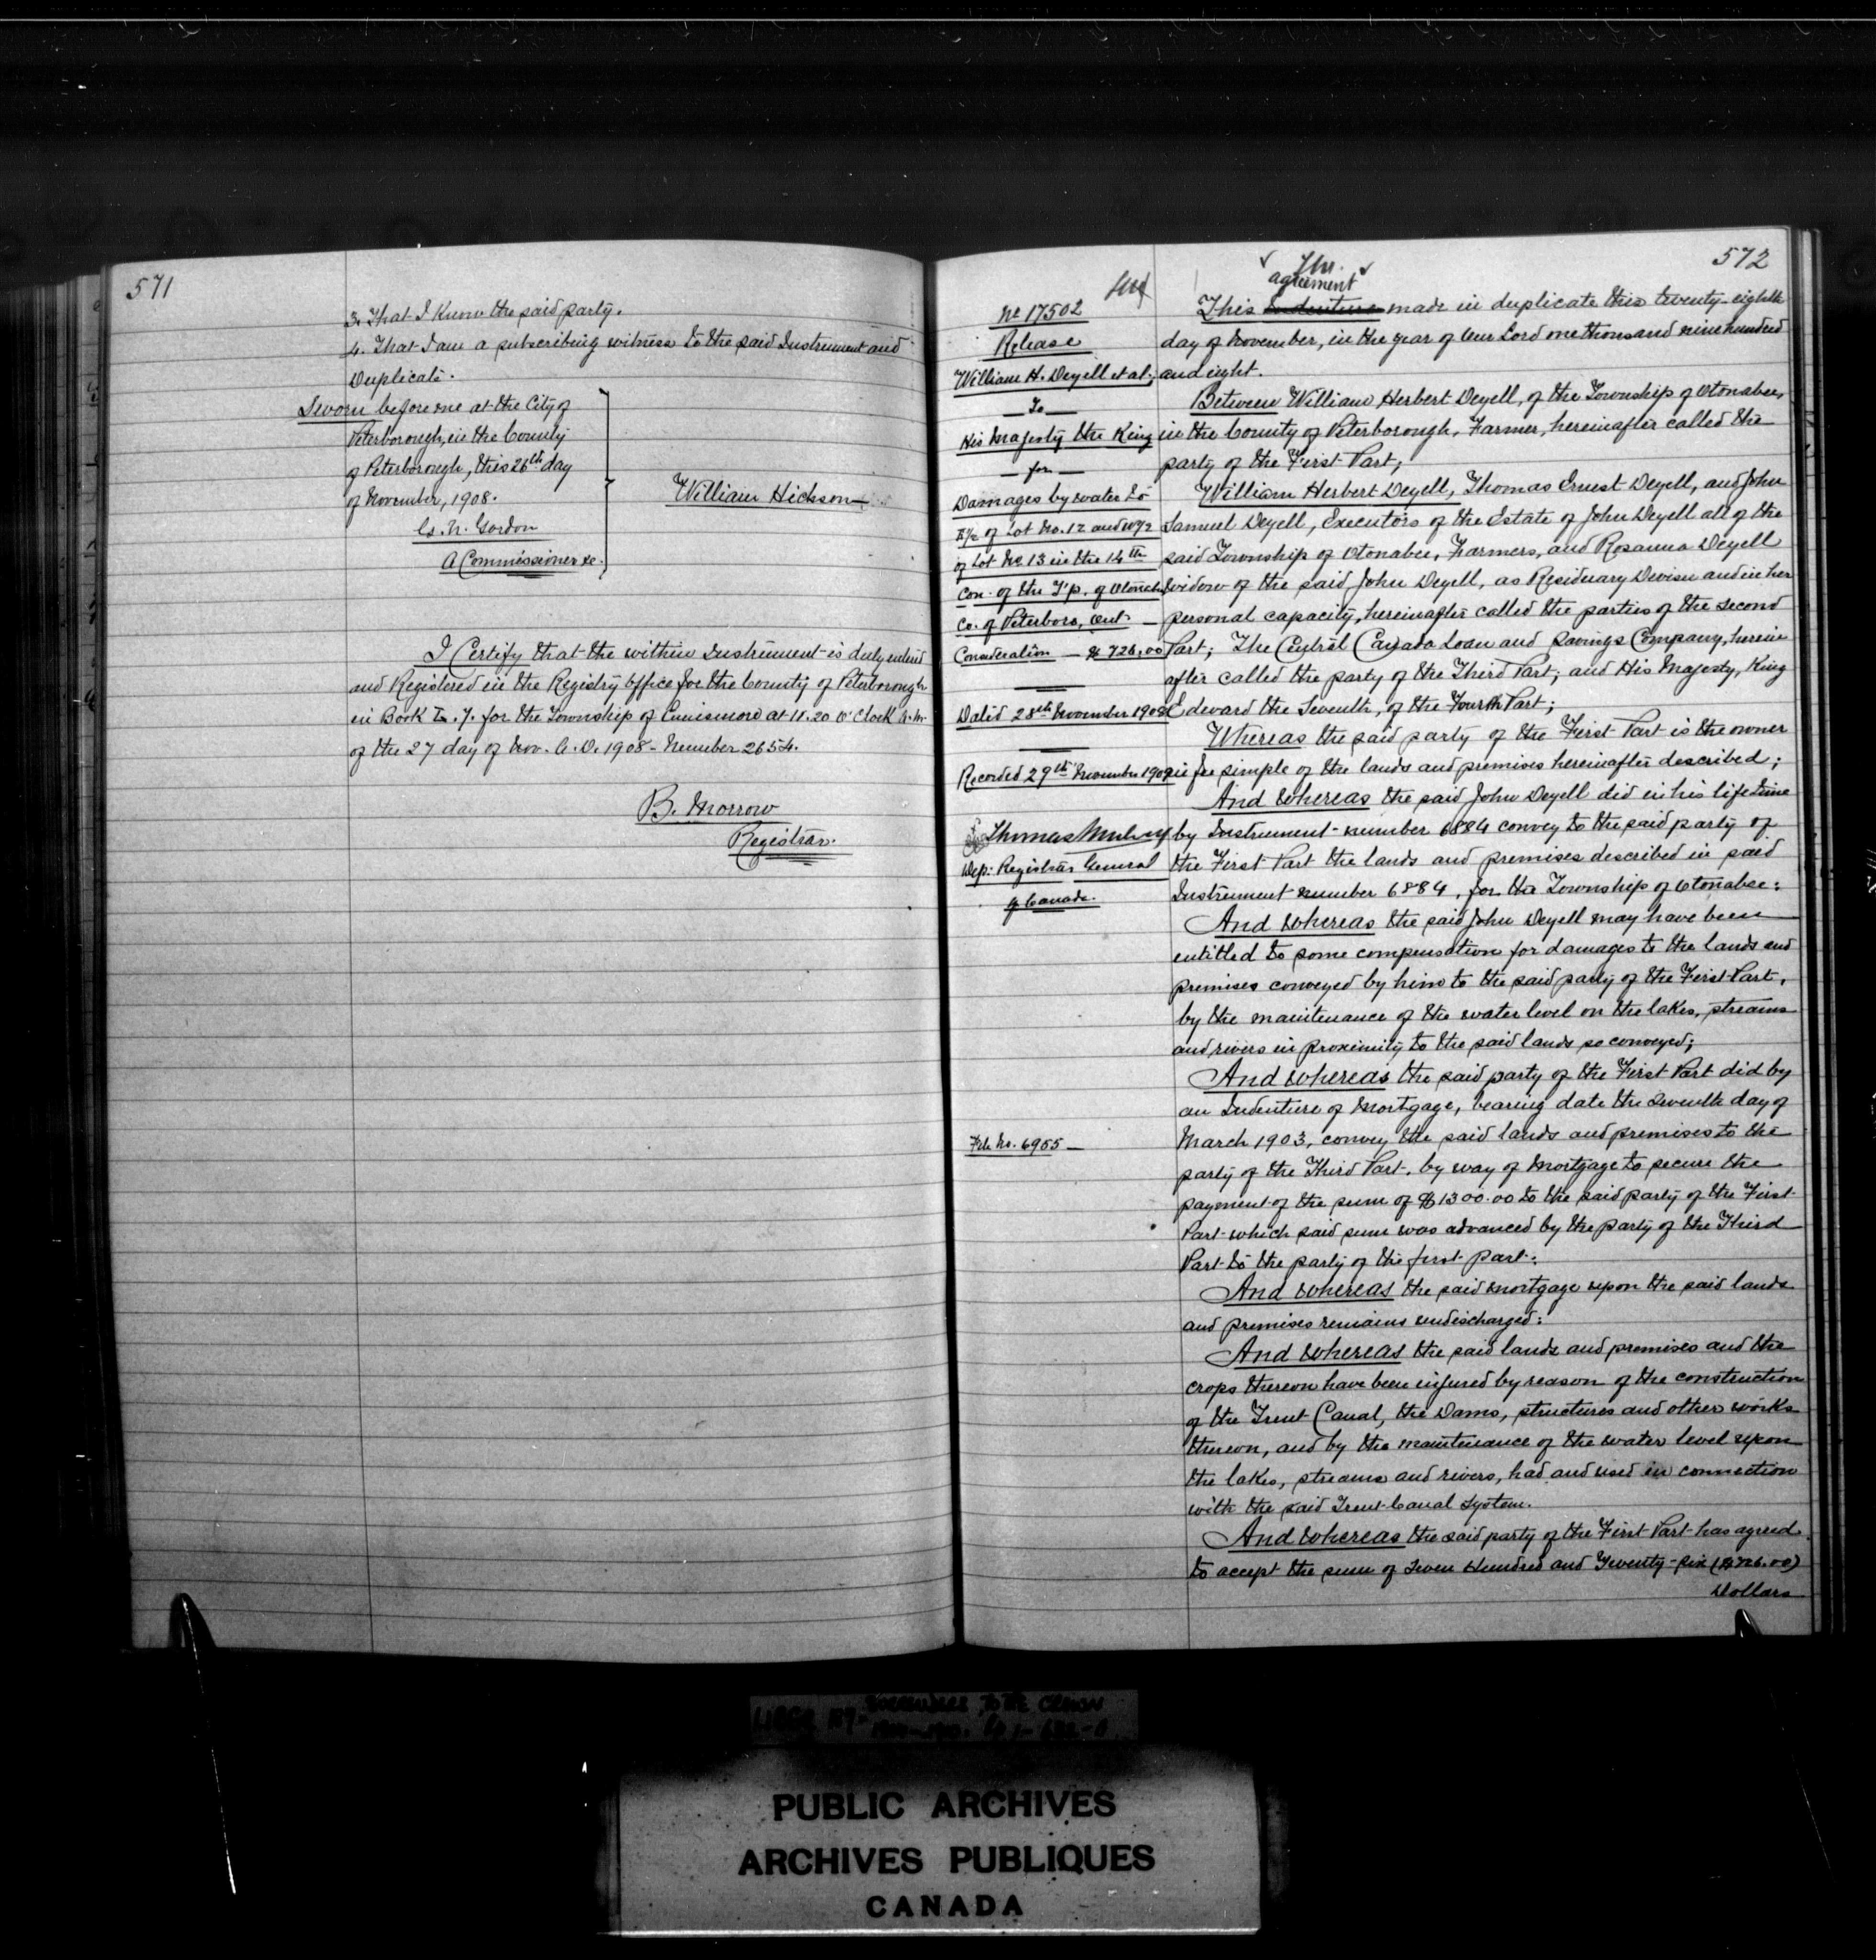 571
3. That I Know the said party.
4. That I am a subscribing witness to the said Instrument and
Duplicate.
Sworn before me at the City of
Peterborough, in the County
of Peterborough, this 26th day
of November, 1908.
G. N. Gordon
A Commissioner &c.
William Hickson
I Certify that the within Instrument is duly entered
and Registered in the Registry Office for the County of Peterborough
in Book for the Township of Ennismore at 11.20 O'Clock A.M.
of the 27 day of Nov. A.D. 1908 - Number 2654.
B. Morrow
Registrar.
572
No 17502
Release
William H. Deyell et al;
To
His Majesty the King
for
Damages by water to
E½ of Lot No. 12 and W½
of Lot No. 13 in the 14th
Con. of the T'p. of Otonabee
Co. of Peterboro, Ont.
Consideration — $726.00
Dated 28th November 1908
Recorded 29th November 1909
Thomas Mulvey
Dep: Registrar General
of Canada.
File No. 6955 —
agreement
This Indenture made in duplicate this twenty-eighth
day of November, in the year of Our Lord one thousand nine hundred
and eight.
Between William Herbert Deyell, of the Township of Otonabee,
in the County of Peterborough, Farmer, hereinafter called the
party of the First Part;
William Herbert Deyell, Thomas Ernest Deyell, and John
Samuel Deyell, Executors of the Estate of John Deyell all of the
said Township of Otonabee, Farmers, and Rosanna Deyell
widow of the said John Deyell, as Residuary Devisee and in her
personal capacity, hereinafter called the parties of the second
Part; The Central Canada Loan and Savings Company, herein
after called the party of the Third Part; and His Majesty, King
Edward the Seventh, of the Fourth Part;
Whereas the said party of the First Part is the owner
in fee simple of the lands and premises hereinafter described;
And Whereas the said John Deyell did in his life time
by Instrument number 6884 convey to the said party of
the First Part the lands and premises described in said
Instrument number 6884, for the Township of Otonabee:
And Whereas the said John Deyell may have been
entitled to some compensation for damages to the lands and
premises conveyed by him to the said party of the First Part,
by the maintenance of the water level on the lakes, streams
and rivers in proximity to the said lands so conveyed;
And Whereas the said party of the First Part did by
an Indenture of Mortgage, bearing date the Seventh day of
March 1903, convey the said lands and premises to the
party of the Third Part, by way of Mortgage to secure the
payment of the sum of $1300.00 to the said party of the First
Part which said sum was advanced by the party of the Third
Part to the party of the first part:
And Whereas the said mortgage upon the said lands
and premises remains undischarged:
And Whereas the said lands and premises and the
crops thereon have been injured by reason of the construction
of the Trent Canal, the Dams, structures and other works
thereon, and by the maintenance of the water level upon
the lakes, streams and rivers, had and used in connection
with the said Trent Canal System.
And Whereas the said party of the First Part has agreed
to accept the sum of Seven Hundred and Twenty-Six ($726.00)
Dollars
PUBLIC ARCHIVES
ARCHIVES PUBLIQUES
CANADA